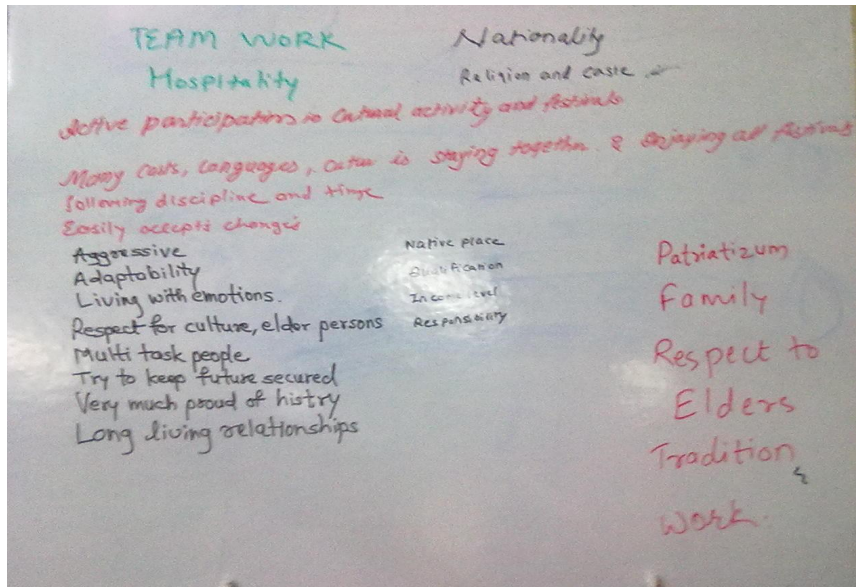 TEAM WORK
Hospitality
Nationality
Religion and caste
Active participation in Cutural activity and festivals
Many casts, Languages, is staying together & Enjoying all festivals
following discipline and time
Easily accepts changes
Aggressive
Adaptability
Living with emotions.
Respect for culture, elder persons
Multi task people
Try to keep future secured
Very much proud of histry
Long living relationships
Native place
Qualification
Income level
Responsibility
Patriatizum
Family
Respect to
Elders
Tradition
&
work.